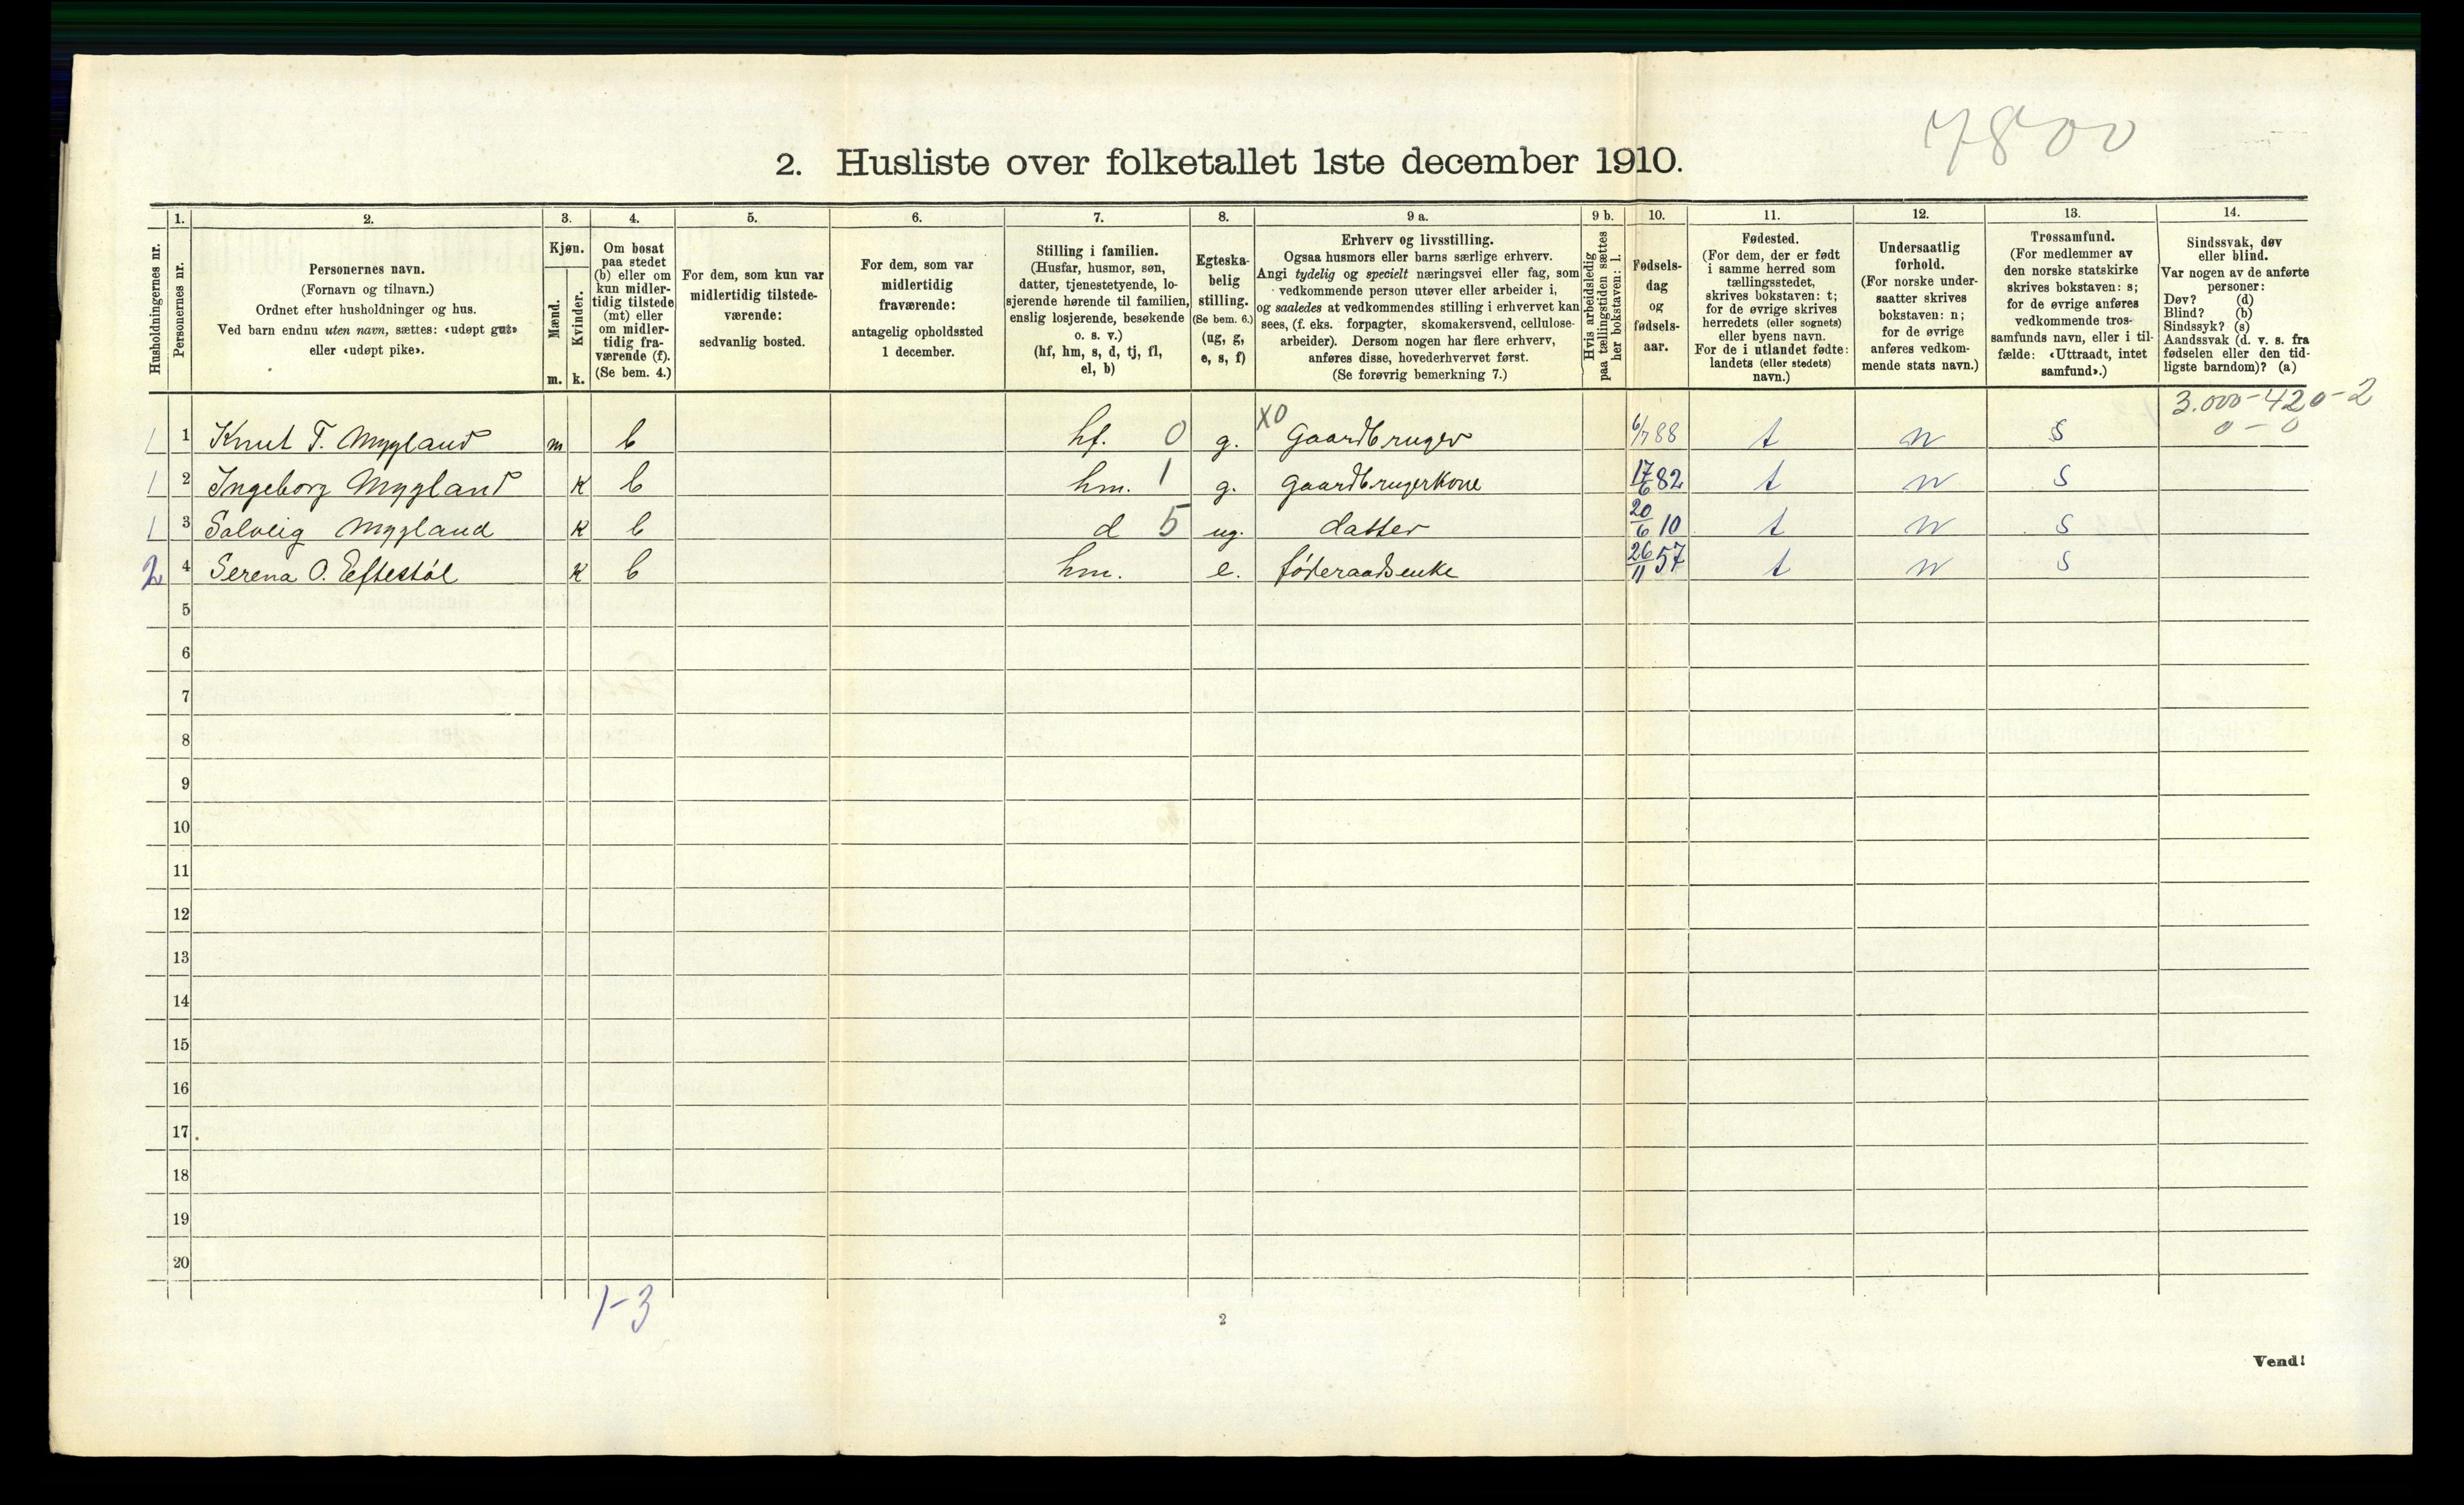 7800
2. Husliste over folketallet 1ste december 1910.
Husholdningernes nr.
1. Personernes nr.
2. Personernes navn.
(Fornavn og tilnavn.)
Ordnet efter husholdninger og hus.
Ved barn endnu uten navn, sættes: «udøpt gut»
eller «udøpt pike».
3. Kjøn.
Mænd. m.
Kvinder. k.
4. Om bosat
paa stedet
(b) eller om
kun midler-
tidig tilstede
(mt) eller
om midler-
tidig fra-
værende (f).
(Se bem. 4.)
5. For dem, som kun var
midlertidig tilstede-
værende:
sedvanlig bosted.
6. For dem, som var
midlertidig
fraværende:
antagelig opholdssted
1 december.
7. Stilling i familien.
(Husfar, husmor, søn,
datter, tjenestetyende, lo-
sjerende hørende til familien,
enslig losjerende, besøkende
o. s. v.)
(hf, hm, s, d, tj, fl,
el, b)
8. Egteska-
belig
stilling.
(Se bem. 6.)
(ug, g,
e, s, f)
9 a. Erhverv og livsstilling.
Ogsaa husmors eller barns særlige erhverv.
Angi tydelig og specielt næringsvei eller fag, som
vedkommende person utøver eller arbeider i,
og saaledes at vedkommendes stilling i erhvervet kan
sees, (f. eks. forpagter, skomakersvend, cellulose-
arbeider). Dersom nogen har flere erhverv,
anføres disse, hovederhvervet først.
(Se forøvrig bemerkning 7.)
9 b. Hvis arbeidsledig
paa tællingstiden sættes
her bokstaven: l.
10. Fødsels-
dag
og
fødsels-
aar.
11. Fødested.
(For dem, der er født
i samme herred som
tællingsstedet,
skrives bokstaven: t;
for de øvrige skrives
herredets (eller sognets)
eller byens navn.
For de i utlandet fødte:
landets (eller stedets)
navn.)
12. Undersaatlig
forhold.
(For norske under-
saatter skrives
bokstaven: n;
for de øvrige
anføres vedkom-
mende stats navn.)
13. Trossamfund.
(For medlemmer av
den norske statskirke
skrives bokstaven: s;
for de øvrige anføres
vedkommende tros-
samfunds navn, eller i til-
fælde: «Uttraadt, intet
samfund».)
14. Sindssvak, døv
eller blind.
Var nogen av de anførte
personer:
Døv? (d)
Blind? (b)
Sindssyk? (s)
Aandssvak (d. v. s. fra
fødselen eller den tid-
ligste barndom)? (a)
3.000-420-2
0-0
1 1 Knut T. Mygland m b hf. 0 g. X0 Gaardbruger 6/7 88 t n s
1 2 Ingeborg Mygland k b hm. 1 g. gaardbrugerkone 17/6 82 t n s
1 3 Solveig Mygland k b d 5 ug. datter 20/6 10 t n s
2 4 Serena O. Eeftestøl k b hm. e. føderaadsenke 26/11 57 t n s
5
6
7
8
9
10
11
12
13
14
15
16
17
18
19
20
1-3
2
Vend!